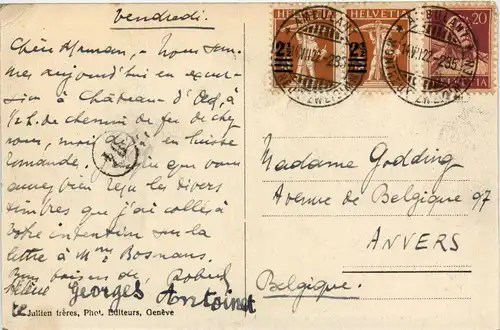 Vendredi.
Chère Maman, - Nous som-
mes aujourd'hui en excur-
sion à Château-d'Oex, à
1/2 h. de chemin de fer de chez
nous, mais en Suisse
romande. que vous
avez bien reçu les divers
timbres que j'ai collés à
votre intention sur la
lettre à Mme Bosmans.
Bons baisers de, Robert
Hélène Georges Antoinette
Jullien frères, Phot. Editeurs, Genève
HELVETIA HELVETIA 20
2½ 2½ HELVETIA
AMBULANT
14.VII.22
Madame Godding
Avenue de Belgique 97
ANVERS
Belgique.